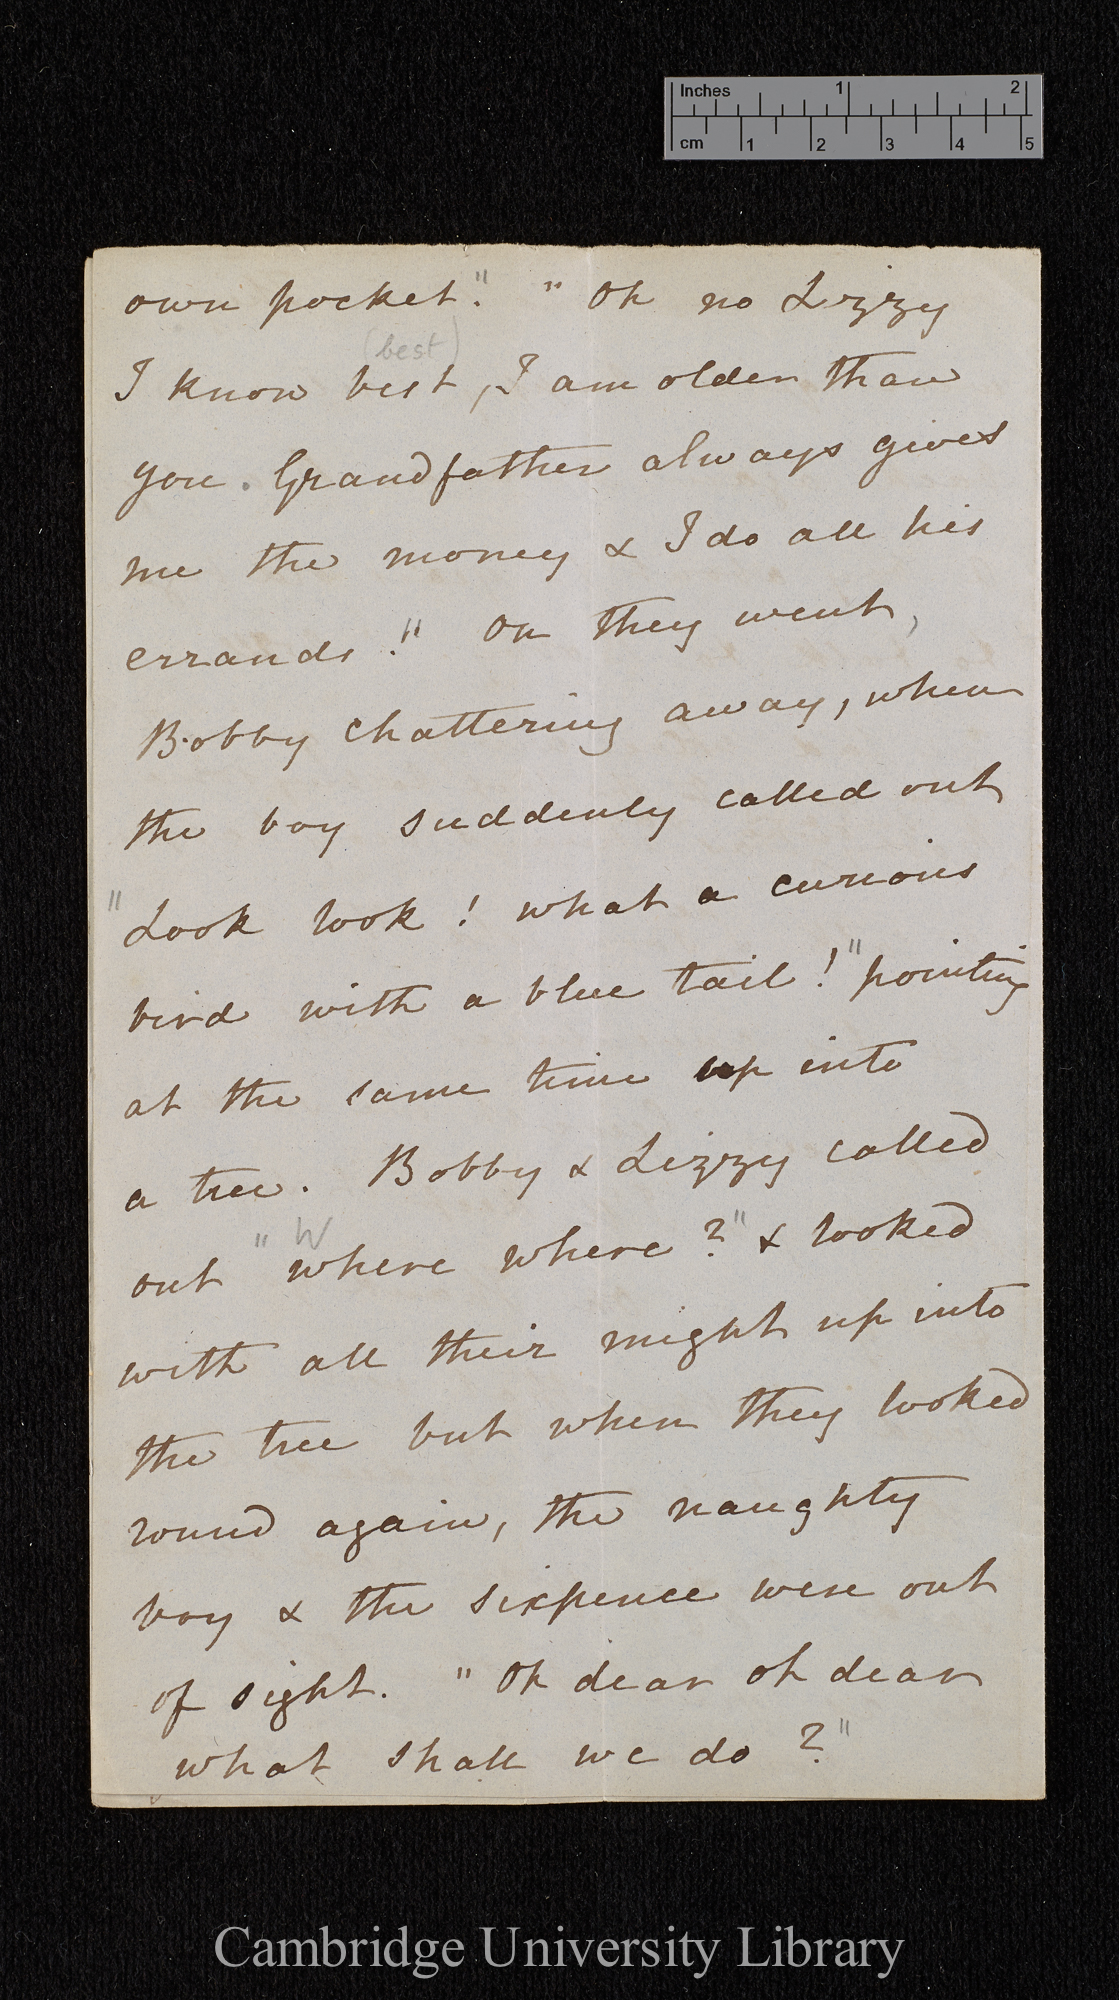 Inches 1 2
cm 1 2 3 4 5
own pocket." "Oh no Lizzy
(best)
I know best, I am older than
you. Grandfather always gives
me the money & I do all his
errands!" On they went,
Bobby chattering away, when
the boy suddenly called out
"Look look! what a curious
bird with a blue tail!" pointing
at the same time up into
a tree. Bobby & Lizzy called
W
out "where where?" & looked
with all their might up into
the tree but when they looked
round again, the naughty
boy & the sixpence were out
of sight. "Oh dear oh dear
what shall we do?"
Cambridge University Library